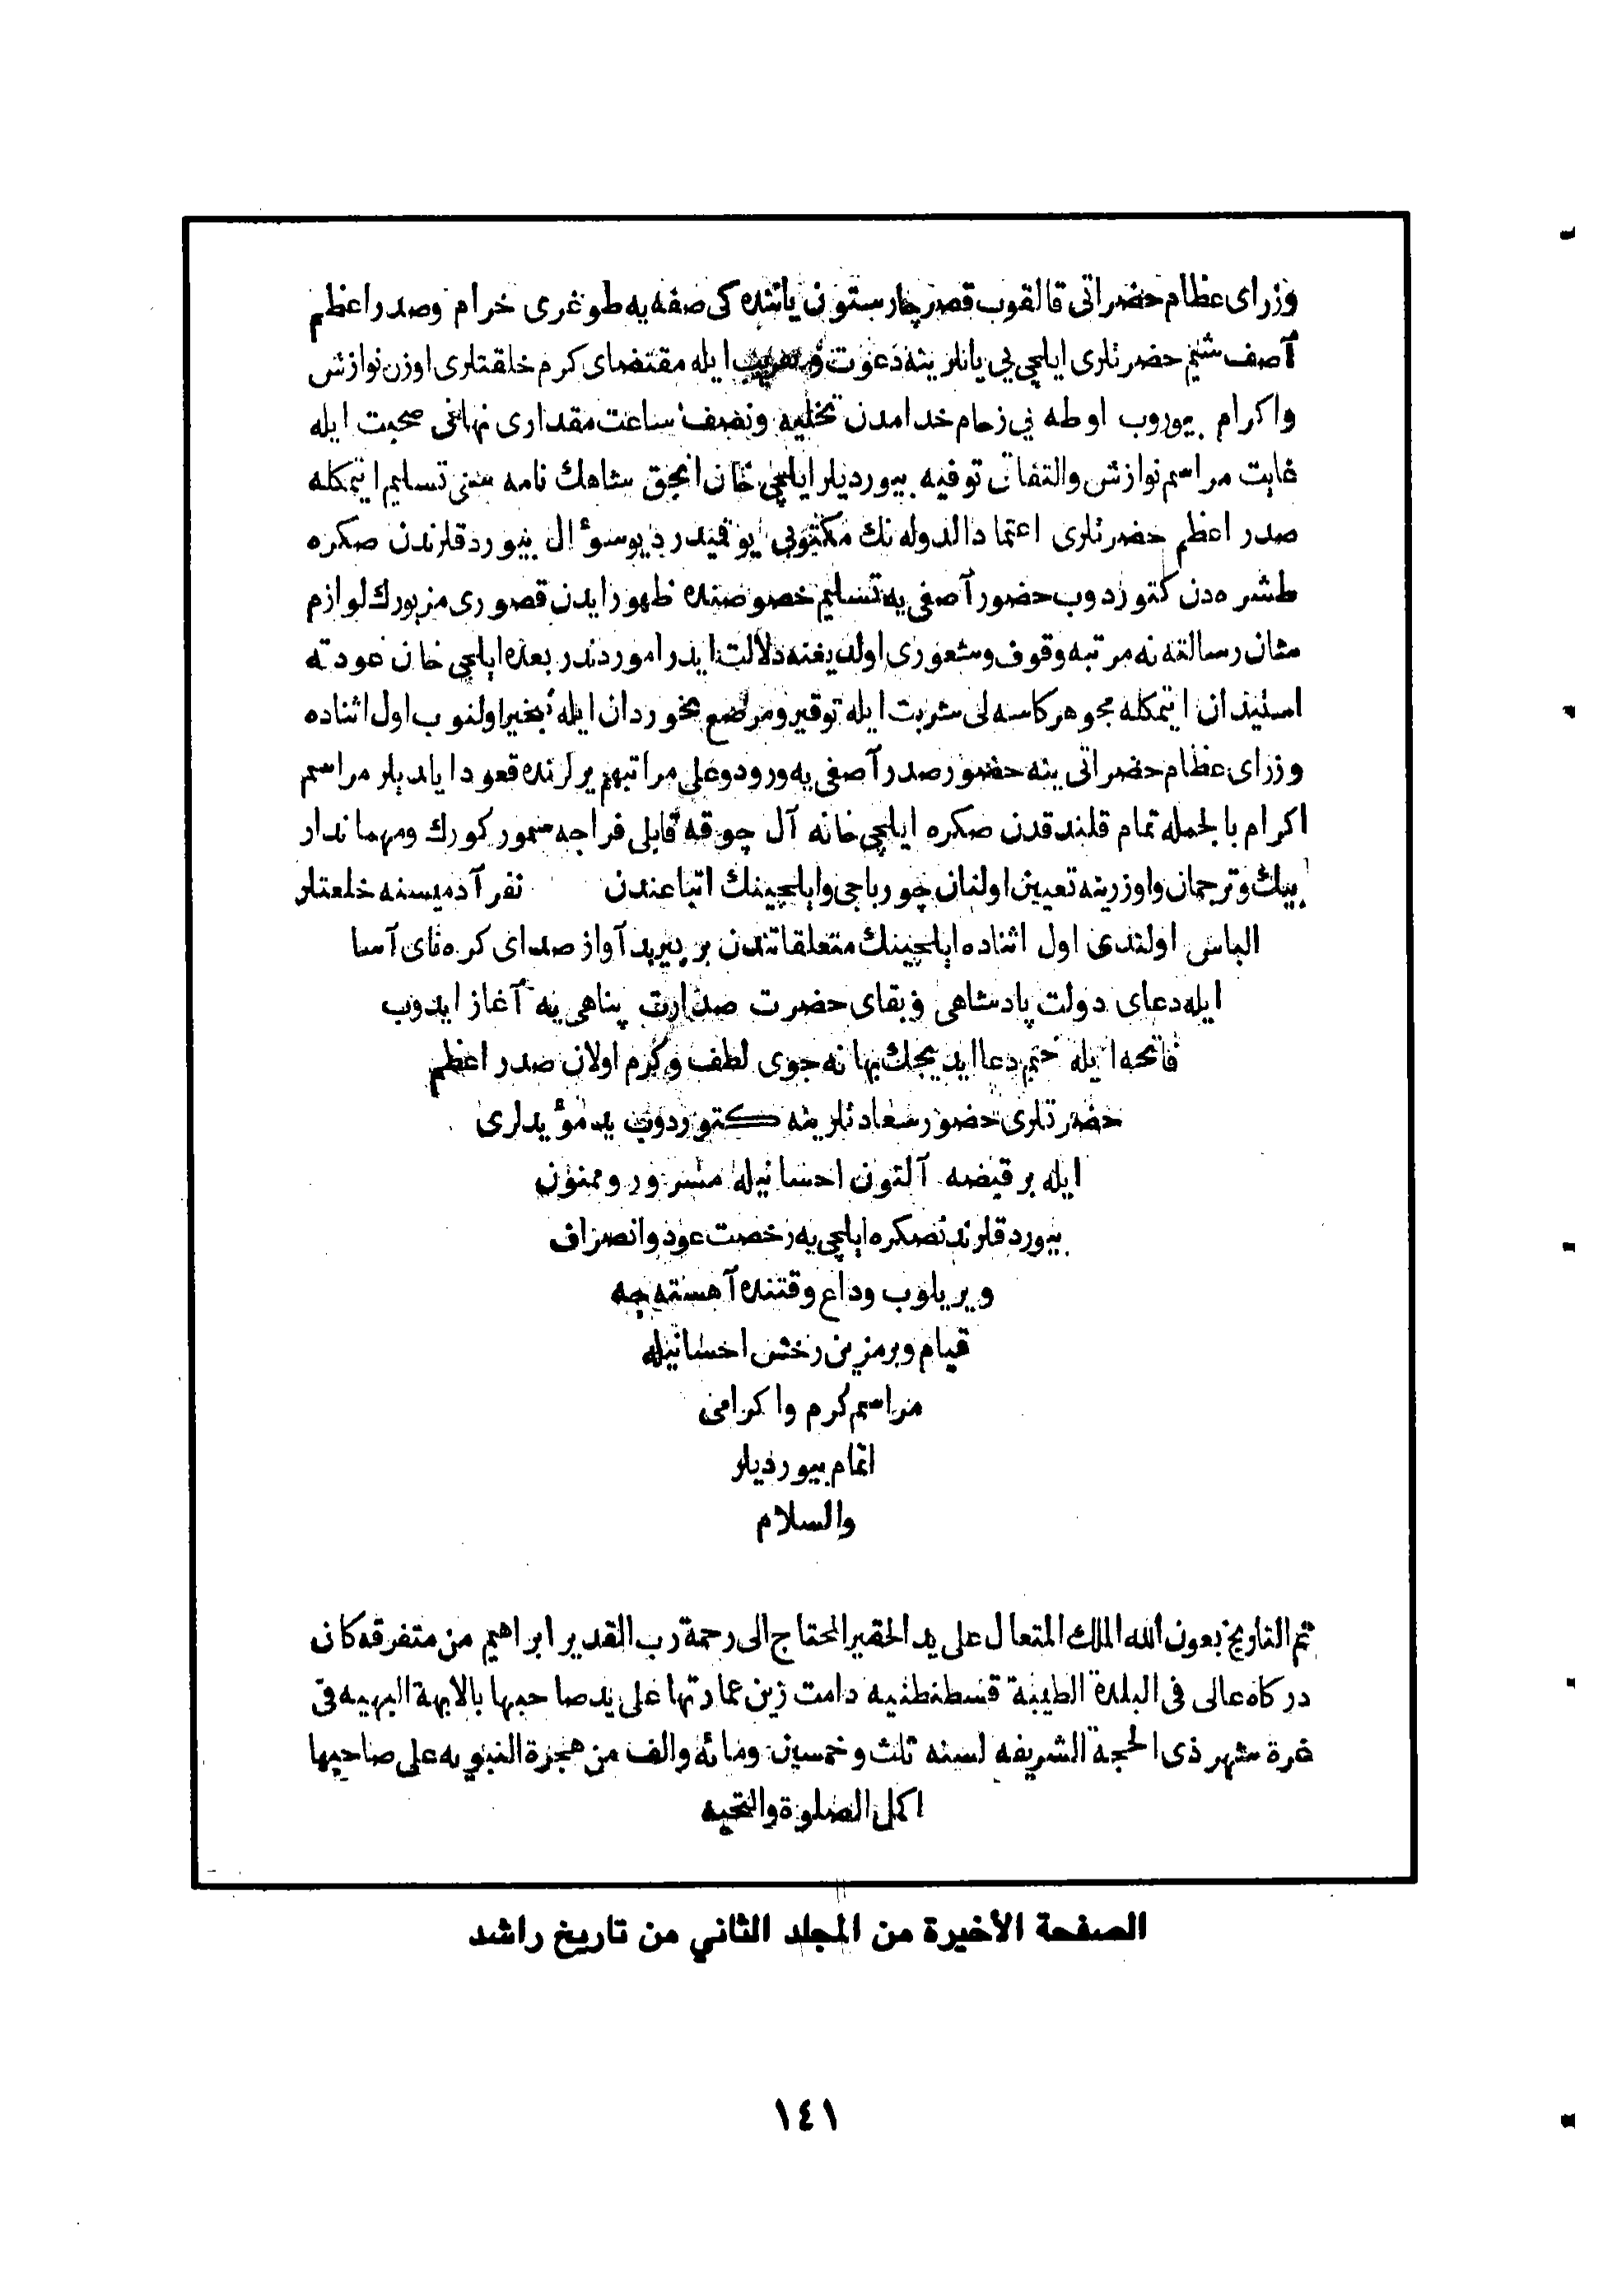 وزرای عظام حضراتی قالقوب قصر چار ستون یاننده کی صفه یه طوغری خرام وصدر اعظم
آصف شیم حضرتلری ایلچی یی یانلرینه دعوت و تقریب ایله مقتضای کرم خلقتلری اوزن نوازش
واکرام بیوروب اوطه یی زحام خدامدن تخلیه ونصف ساعت مقداری نهانی صحبت ایله
غایت مراسم نوازش والتفاتی توفیه بیوردیلر ایلچی خان انجق شاهك نامه سنی تسلیم اتمکله
صدر اعظم حضرتلری اعتماد الدوله نك مکتوبی یوقمیدر دیو سؤال بیوردقلرندن صکره
طشره دن کتوردوب حضور آصفی یه تسلیم خصوصنده ظهور ایدن قصوری مزبورك لوازم
شان رسالتده نه مرتبه وقوف وشعوری اولدیغنه دلالت ایدر اموردندر بعده ایلچی خان عودته
استیذان اتمکله مجوهر کاسه لی شربت ایله توقیر ومرصع بخوردان ایله تبخیر اولنوب اول اثناده
وزرای عظام حضراتی ینه حضور صدر آصفی یه ورود وعلی مراتبهم یرلرنده قعود ایلدیلر مراسم
اکرام بالجمله تمام قلندقدن صکره ایلچی خانه آل چوقه قابلی فراجه سمور کورك ومهماندار
بیك وترجمان واوزرینه تعیین اولنان چورباجی وایلچینك اتباعندن نفر آدمیسنه خلعتلر
الباس اولندی اول اثناده ایلچینك متعلقاتندن بر پیر بد آواز صدای کره نای آسا
ایله دعای دولت پادشاهی و بقای حضرت صدارت پناهی یه آغاز ایدوب
فاتحه ایله ختم دعا ایدیجك بهانه جوی لطف وکرم اولان صدر اعظم
حضرتلری حضور سعادتلرینه کتوردوب ید مؤیدلری
ایله بر قبضه آلتون احسانیله مسرور وممنون
بیوردقلرندنصکره ایلچی یه رخصت عود وانصراف
ویریلوب وداع وقتنده آهسته جه
قیام وبر مزین رخش احسانیله
مراسم کرم واکرامی
اتمام بیوردیلر
والسلام
تم التاریخ بعون الله الملك المتعال علی ید الحقیر المحتاج الی رحمة رب القدیر ابراهیم من متفرقه کان
درکاه عالی فی البلدة الطیبة قسطنطنیه دامت زین عمارتها علی ید صاحبها بالابهة البهیه فی
غرة شهر ذی الحجة الشریفه لسنه ثلث وخمسین ومائه والف من هجرة النبویه علی صاحبها
اکمل الصلوة والتحیه
الصفحة الأخيرة من المجلد الثاني من تاريخ راشد
١٤١